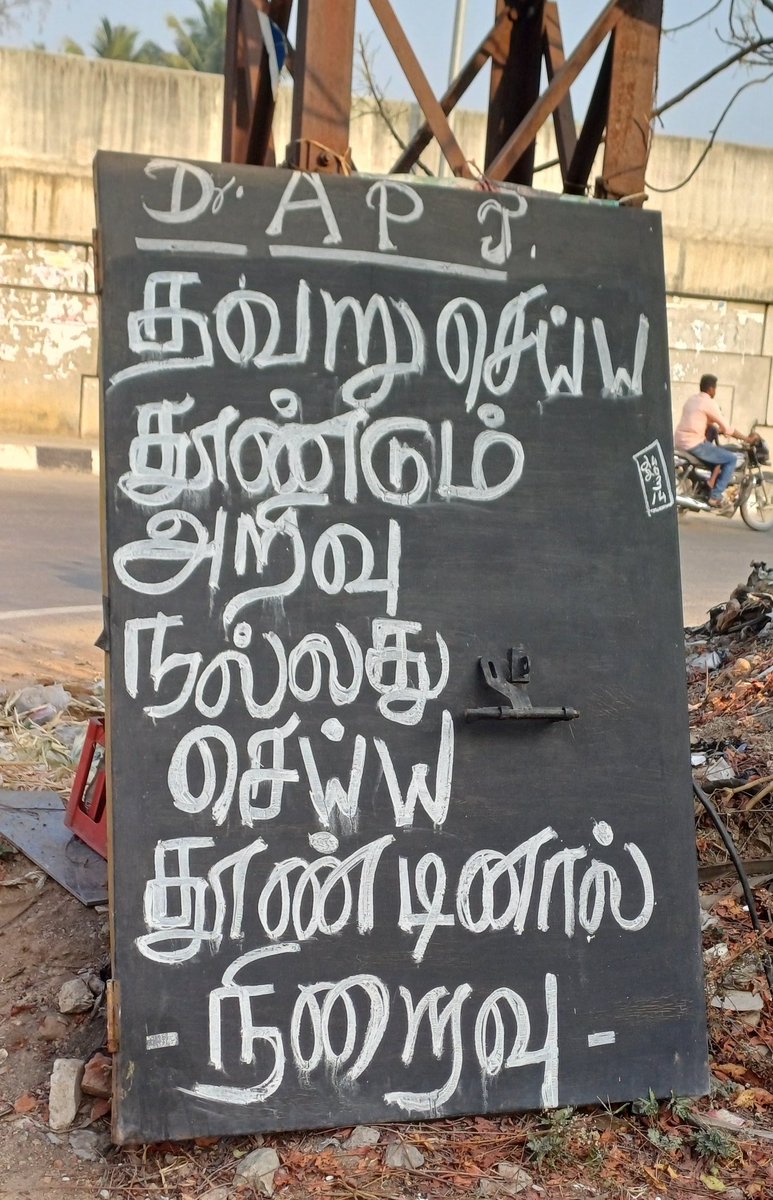 Dr. A P J.
தவறு செய்ய
தூண்டும்
அறிவு
நல்லது
செய்ய
தூண்டினால்
- நிறைவு -